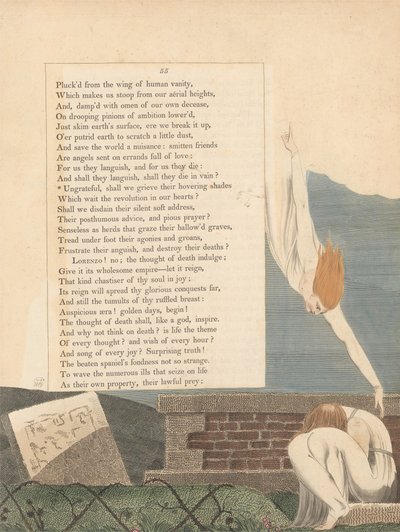 55
Pluck'd from the wing of human vanity,
Which makes us stoop from our aërial heights,
And, damp'd with omen of our own decease,
On drooping pinions of ambition lower'd,
Just skim earth's surface, ere we break it up,
O'er putrid earth to scratch a little dust,
And save the world a nuisance: smitten friends
Are angels sent on errands full of love:
For us they languish, and for us they die:
And shall they languish, shall they die in vain?
* Ungrateful, shall we grieve their hovering shades
Which wait the revolution in our hearts?
Shall we disdain their silent soft address,
Their posthumous advice, and pious prayer?
Senseless as herds that graze their hallow'd graves,
Tread under foot their agonies and groans,
Frustrate their anguish, and destroy their deaths?
LORENZO! no; the thought of death indulge;
Give it its wholesome empire—let it reign,
That kind chastiser of thy soul in joy;
Its reign will spread thy glorious conquests far,
And still the tumults of thy ruffled breast:
Auspicious æra! golden days, begin!
The thought of death shall, like a god, inspire.
And why not think on death? is life the theme
Of every thought? and wish of every hour?
And song of every joy? Surprising truth!
The beaten spaniel's fondness not so strange.
To wave the numerous ills that seize on life
As their own property, their lawful prey;